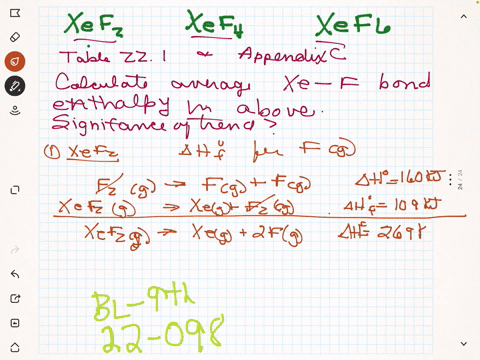 XeF2 XeF4 XeF6
Table 22.1 & Appendix C
Calculate average Xe-F bond
enthalpy in above.
Signifance of trend?
① XeF2 ΔH°f for F(g)
F2(g) → F(g) + F(g) ΔH° = 160 kJ
XeF2(g) → Xe(g) + F2(g) ΔH°f = 109 kJ
XeF2(g) → Xe(g) + 2F(g) ΔH°f = 269 k
BL-9th
22-098